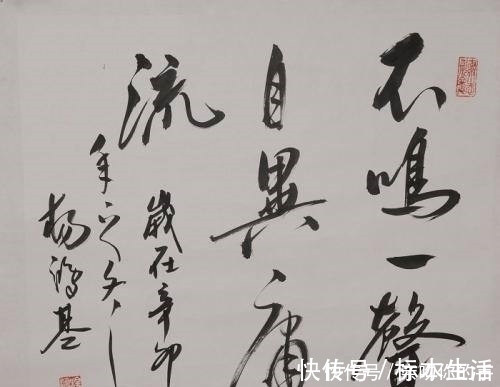 不鸣一聲
自異庸
流
歲在辛卯
年之冬
杨鸿基
快传号/标本生活